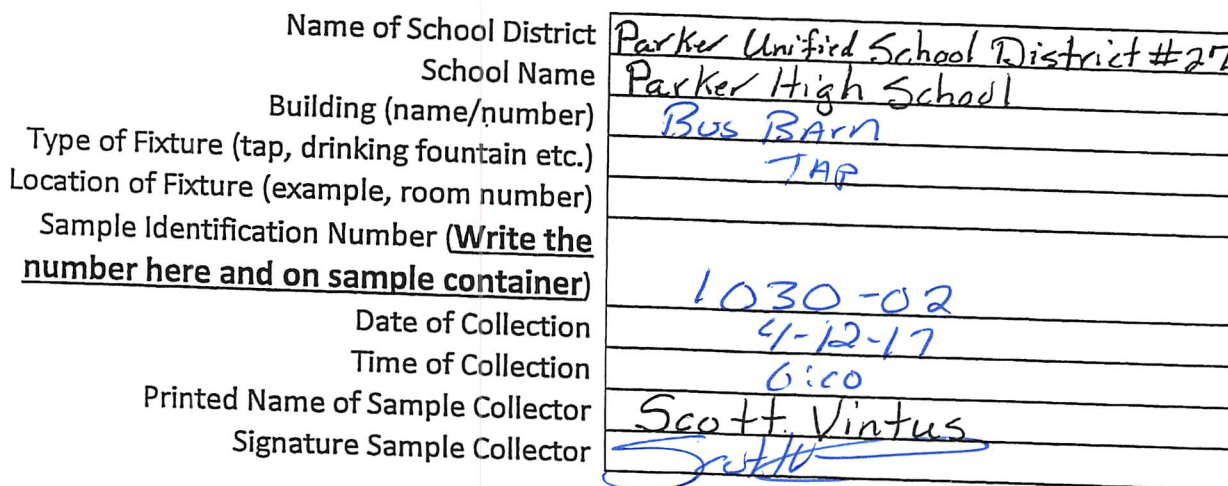 Name of School District Parker Unified School District #27
School Name Parker High School
Building (name/number) Bus BArn
Type of Fixture (tap, drinking fountain etc.) TAP
Location of Fixture (example, room number)
Sample Identification Number (Write the
number here and on sample container) 1030-02
Date of Collection 4-12-17
Time of Collection 6:00
Printed Name of Sample Collector Scott Vintus
Signature Sample Collector